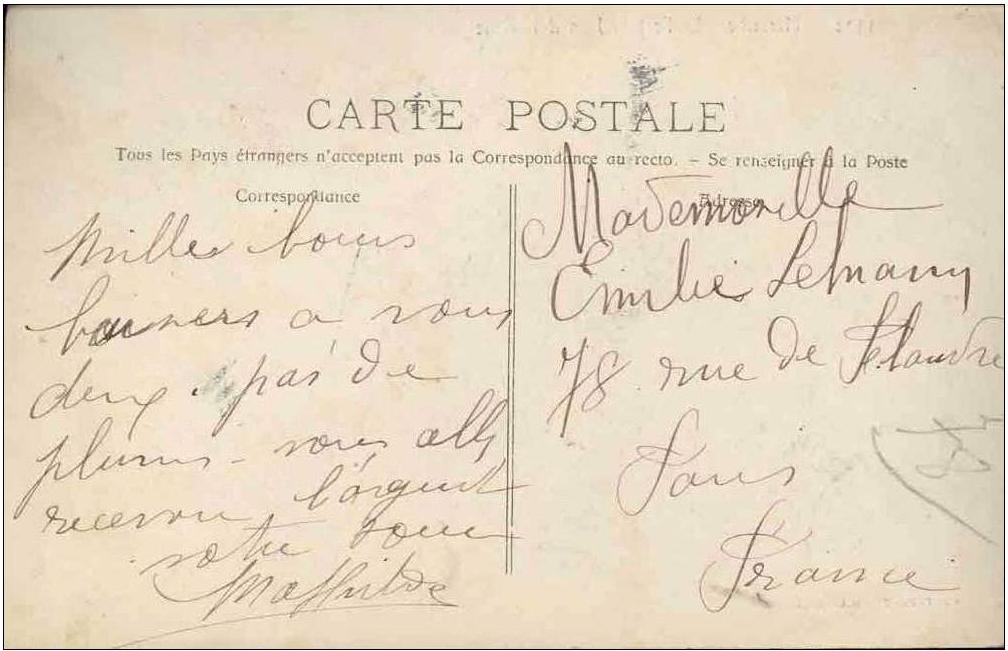 CARTE POSTALE
Tous les Pays étrangers n'acceptent pas la Correspondance au recto. – Se renseigner à la Poste
Correspondance
Milles bons
baisers a vous
deux. pas de
plus - vous allez
recevoir l'argent
votre soeur
Mathilde
Adresse
Mademoiselle
Emilie Lemany
78. rue de Flandre
Paris
France